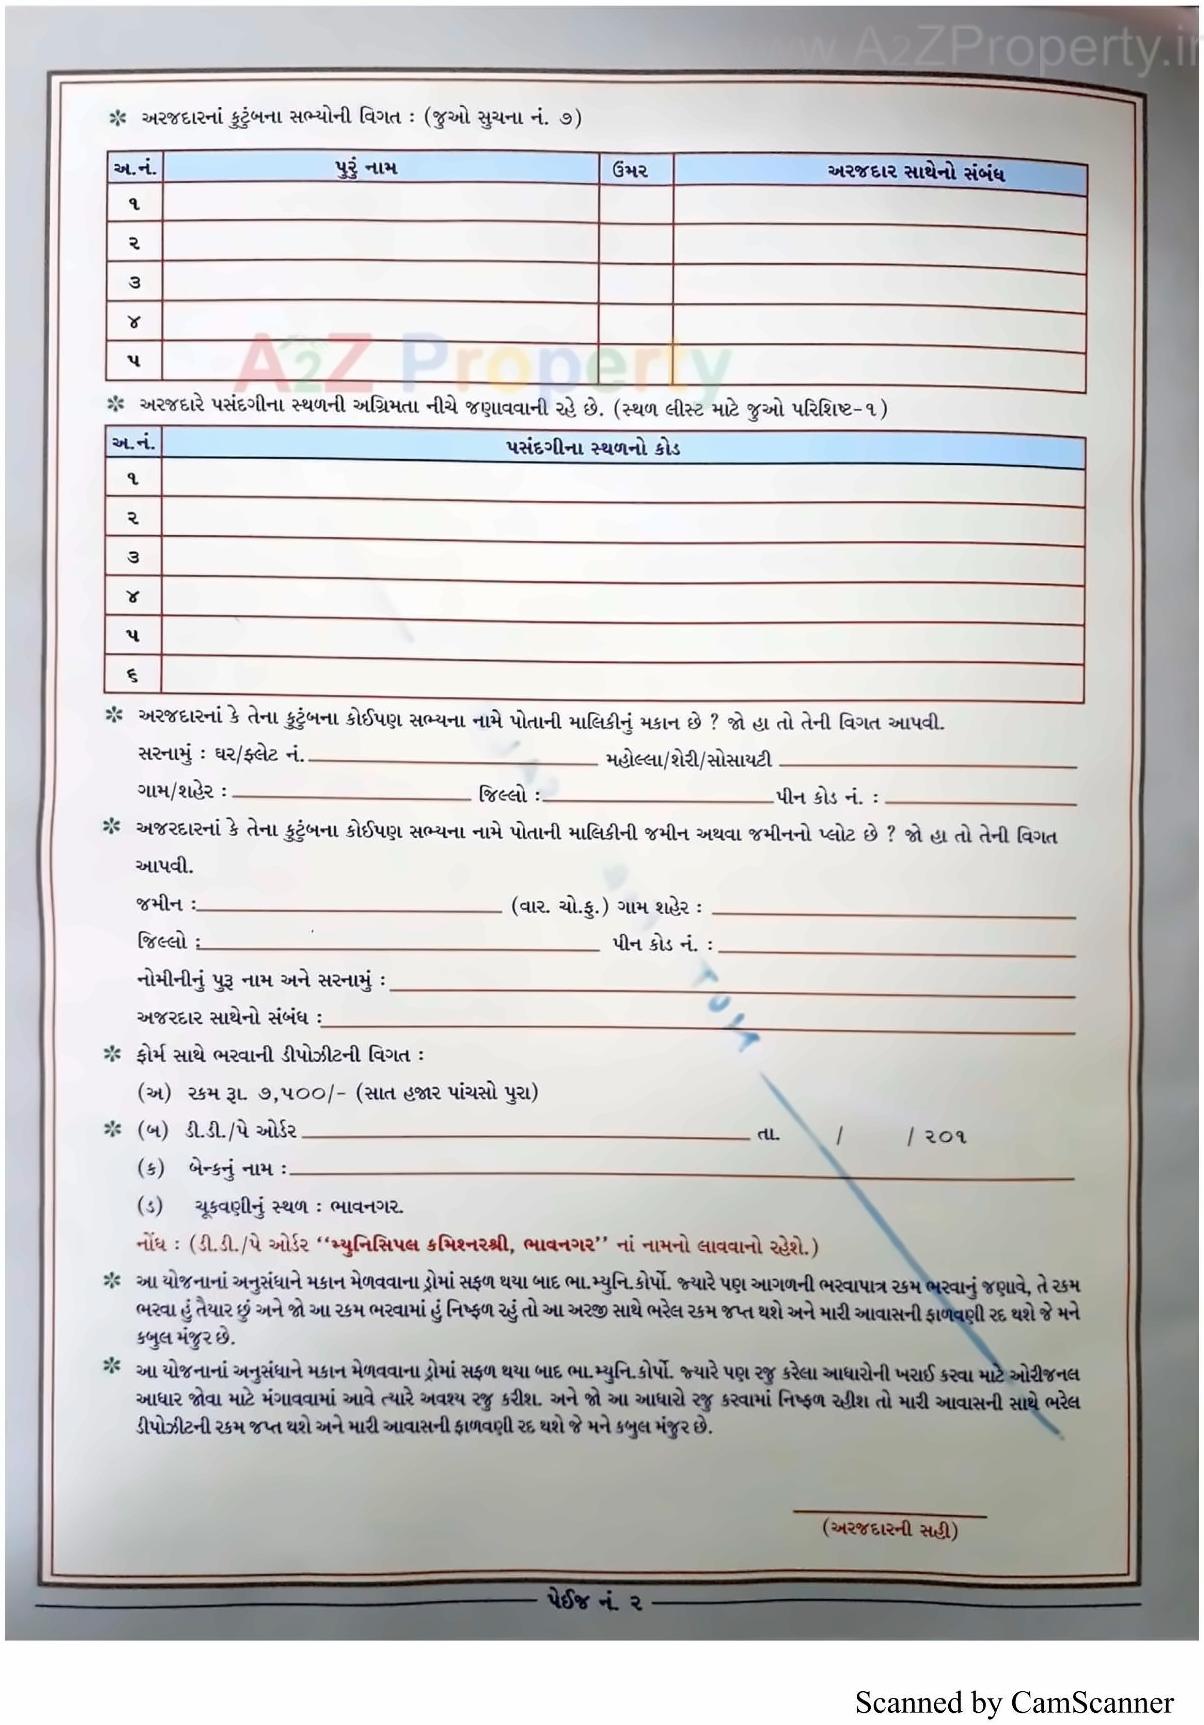 www.A2ZProperty.in
✼ અરજદારનાં કુટુંબના સભ્યોની વિગત : (જુઓ સુચના નં. ૭)
અ.નં. પુરું નામ ઉંમર અરજદાર સાથેનો સંબંધ
૧
૨
૩
૪
૫
A2Z Property
✼ અરજદારે પસંદગીના સ્થળની અગ્રિમતા નીચે જણાવવાની રહે છે. (સ્થળ લીસ્ટ માટે જુઓ પરિશિષ્ટ-૧)
અ.નં. પસંદગીના સ્થળનો કોડ
૧
૨
૩
૪
૫
૬
✼ અરજદારનાં કે તેના કુટુંબના કોઈપણ સભ્યના નામે પોતાની માલિકીનું મકાન છે ? જો હા તો તેની વિગત આપવી.
સરનામું : ઘર/ફ્લેટ નં. મહોલ્લા/શેરી/સોસાયટી
ગામ/શહેર : જિલ્લો : પીન કોડ નં. :
✼ અજરદારનાં કે તેના કુટુંબના કોઈપણ સભ્યના નામે પોતાની માલિકીની જમીન અથવા જમીનનો પ્લોટ છે ? જો હા તો તેની વિગત
આપવી.
જમીન : (વાર. ચો.ફુ.) ગામ શહેર :
જિલ્લો : પીન કોડ નં. :
નોમીનીનું પુરૂ નામ અને સરનામું :
અજરદાર સાથેનો સંબંધ :
✼ ફોર્મ સાથે ભરવાની ડીપોઝીટની વિગત :
(અ) રકમ રૂા. ૭,૫૦૦/- (સાત હજાર પાંચસો પુરા)
✼ (બ) ડી.ડી./પે ઓર્ડર તા. / / ૨૦૧
(ક) બેન્કનું નામ :
(ડ) ચૂકવણીનું સ્થળ : ભાવનગર.
નોંધ : (ડી.ડી./પે ઓર્ડર “મ્યુનિસિપલ કમિશ્નરશ્રી, ભાવનગર” નાં નામનો લાવવાનો રહેશે.)
✼ આ યોજનાનાં અનુસંધાને મકાન મેળવવાના ડ્રોમાં સફળ થયા બાદ ભા.મ્યુનિ.કોર્પો. જ્યારે પણ આગળની ભરવાપાત્ર રકમ ભરવાનું જણાવે, તે રકમ
ભરવા હું તૈયાર છું અને જો આ રકમ ભરવામાં હું નિષ્ફળ રહું તો આ અરજી સાથે ભરેલ રકમ જપ્ત થશે અને મારી આવાસની ફાળવણી રદ થશે જે મને
કબુલ મંજુર છે.
✼ આ યોજનાનાં અનુસંધાને મકાન મેળવવાના ડ્રોમાં સફળ થયા બાદ ભા.મ્યુનિ.કોર્પો. જ્યારે પણ રજુ કરેલા આધારોની ખરાઈ કરવા માટે ઓરીજનલ
આધાર જોવા માટે મંગાવવામાં આવે ત્યારે અવશ્ય રજુ કરીશ. અને જો આ આધારો રજુ કરવામાં નિષ્ફળ રહીશ તો મારી આવાસની સાથે ભરેલ
ડીપોઝીટની રકમ જપ્ત થશે અને મારી આવાસની ફાળવણી રદ થશે જે મને કબુલ મંજુર છે.
(અરજદારની સહી)
પેઈજ નં. ૨
Scanned by CamScanner